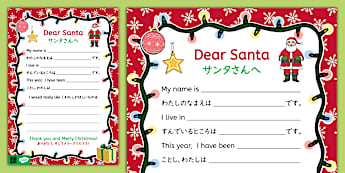 Dear Santa
サンタさんへ
My name is
わたしのなまえは です。
I live in
すんでいるところは です。
This year, I have been
ことし、わたしは
I would really like
Thank you and Merry Christmas!
Dear Santa
サンタさんへ
My name is
わたしのなまえは です。
I live in
すんでいるところは です。
This year, I have been
ことし、わたしは です。